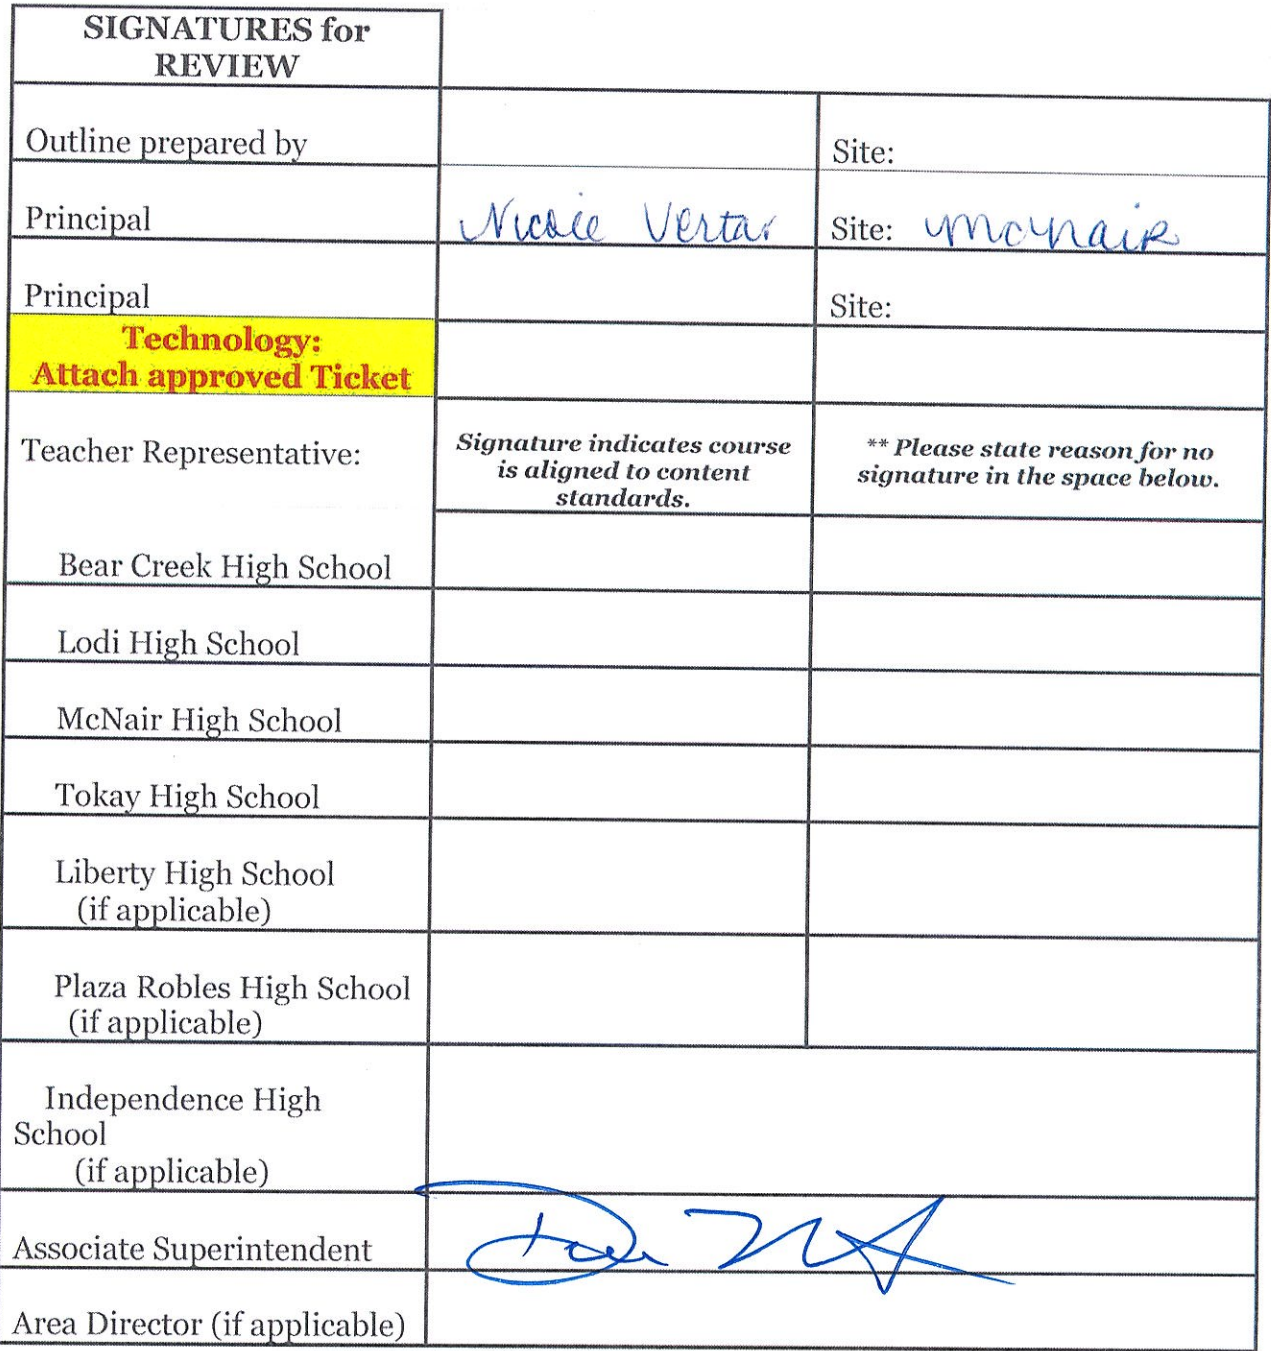 SIGNATURES for
REVIEW
Outline prepared by
Site:
Principal
Nicole Vertar
Site: McNair
Principal
Site:
Technology:
Attach approved Ticket
Teacher Representative:
Signature indicates course
is aligned to content
standards.
** Please state reason for no
signature in the space below.
Bear Creek High School
Lodi High School
McNair High School
Tokay High School
Liberty High School
(if applicable)
Plaza Robles High School
(if applicable)
Independence High
School
(if applicable)
Associate Superintendent
Area Director (if applicable)